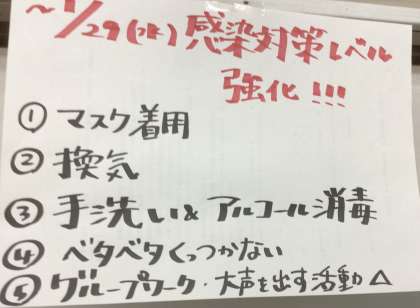 ～1/29(水)感染対策レベル
強化!!!
① マスク着用
② 換気
③ 手洗い&アルコール消毒
④ ベタベタくっつかない
⑤ グループワーク・大声を出す活動△